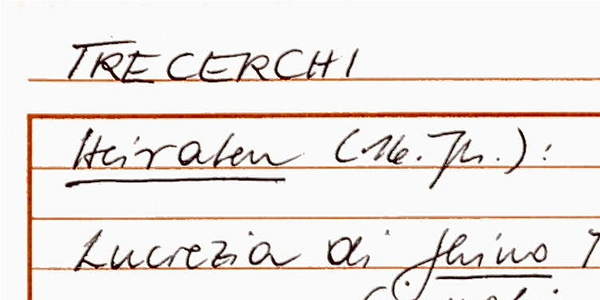 TRECERCHI
Heiraten (16. Jh.):
Lucrezia di Ghino